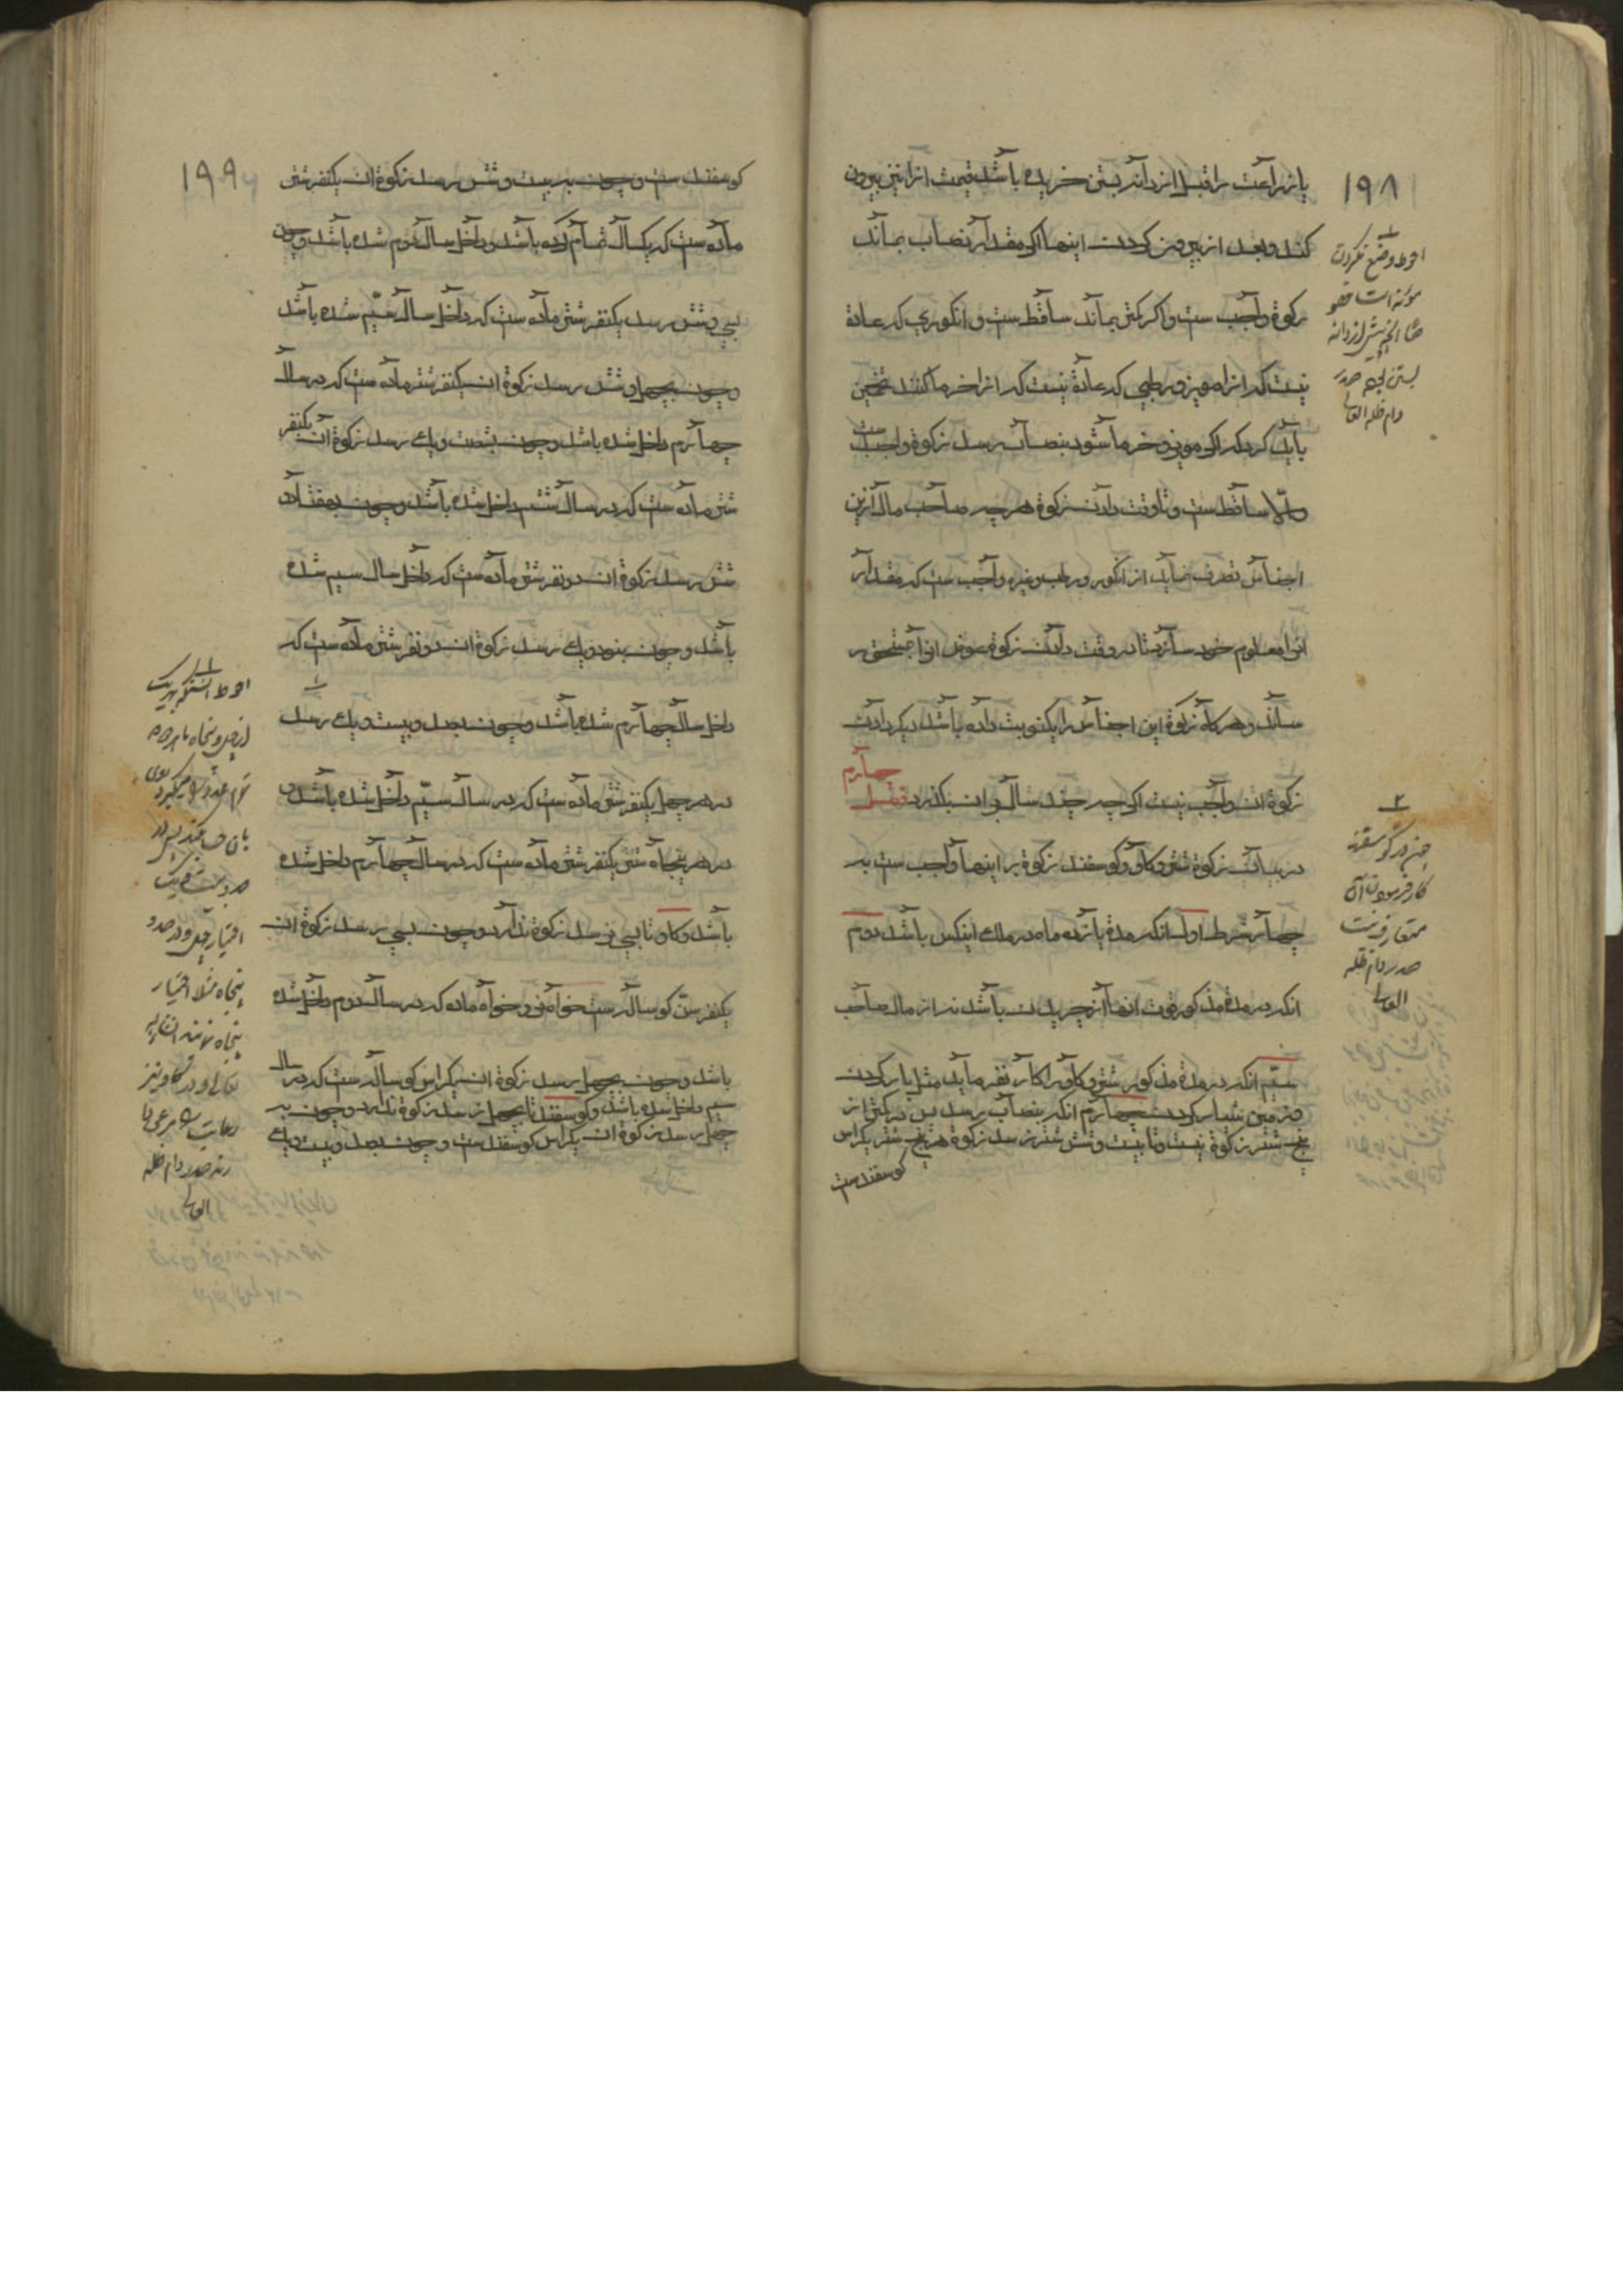 ۱۹۸
یا زراعت را قبل از دانه بستن خریده باشد قیمت انرا نیز بیرون
کند و بعد از بیرون کردن اینها اگر مقدار نصاب بماند
زکوة واجب ست و اگر کمتر بماند ساقط ست و انگوری که عادة
نیست که انرا مویز و رطبی که عادة نیست که انرا خرما کنند تخمین
باید کرد که اگر مویز و خرما شود بنصاب رسد زکوة واجب ست
والا ساقط ست و تا وقت دادن زکوة هر چه صاحب مال ازین
اجناس تصرف نماید از انگور و رطب و غیره واجب ست که مقدار
انرا معلوم خود سازد تا در وقت دادن زکوة عوض انرا بمستحق ر
ساند و هر گاه زکوة این اجناس را یکنوبت داده باشد دیگر دادن
زکوة ان واجب نیست اگر چه چند سال بر ان بگذرد فصل چهارم
در بیان زکوة شتر و گاو و گوسفند زکوة بر اینها واجب ست به
چهار شرط اول انکه مدة یازده ماه در ملک اینکس باشد دوم
انکه در مدة مذکور قوت انها از چریدن باشد نه از مال صاحب
سیم انکه در مدة مذکور شتر و گاو را کار نفرماید مثل بار کردن
و زمین شیار کردن چهارم انکه بنصاب رسد پس در کمتر از
پنج شتر زکوة نیست و تا بیست و شش شتر نرسد زکوة هر پنج شتر یکراس
گوسفند ست
۱
احوط وضع نکردن
مؤنه است خصو
صا انچه پیش از دانه
بستن صدر
دام ظله العالی
۲
چون در گوسفند
کار فرمودن آن
متعارف نیست
صدر دام ظله
العالی
۱۹۹
گوسفند ست و چون به بیست و شش رسد زکوة ان یکنفر شتر
ماده ست که یکسال تمام کرده باشد و داخل سال دوم شده باشد و چون
بسی و شش رسد یکنفر شتر ماده ست که داخل سال سیم شده باشد
و چون بچهل و شش رسد زکوة ان یکنفر شتر ماده ست که در سال
چهارم داخل شده باشد و چون بشصت و یک رسد زکوة ان یکنفر
شتر ماده ست که در سال پنجم داخل شده باشد و چون بهفتاد و
شش رسد زکوة ان دو نفر شتر ماده ست که داخل سال سیم شده
باشد و چون بنود و یک رسد زکوة ان دو نفر شتر ماده ست که
داخل سال چهارم شده باشد و چون بصد و بیست و یک رسد
در هر چهل یکنفر شتر ماده ست که در سال سیم داخل شده باشد و
در هر پنجاه شتر یکنفر شتر ماده ست که در سال چهارم داخل شده
باشد و گاو تا بسی نرسد زکوة ندارد و چون بسی رسد زکوة ان
یکنفر گوساله ست خواه نر و خواه ماده که در سال دوم داخل شده
باشد و چون بچهل رسد زکوة ان یکراس گوساله ست که در سال
سیم داخل شده باشد و گوسفند تا بچهل نرسد زکوة ندارد و چون به
چهل رسد زکوة ان یکراس گوسفند ست و چون بصد و بیست و یک
۱
احوط انست که بهر یک
از چهل و پنجاه
بان حساب کند پس در
صد و بیست و یک
اختیار چهل و در صد و
پنجاه مثلا اختیار
پنجاه نمایند
و در گاو نیز
رعایت
صدر دام ظله
العالی